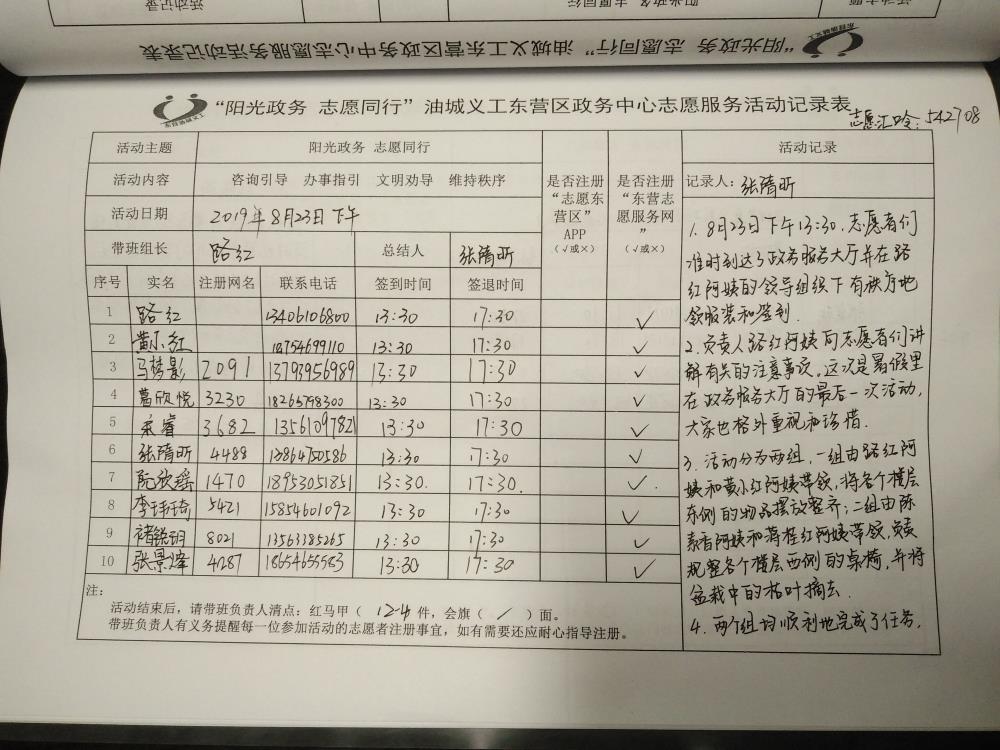 “阳光政务 志愿同行”油城义工东营区政务中心志愿服务活动记录表
“阳光政务 志愿同行”油城义工东营区政务中心志愿服务活动记录表
志愿汇口令:542708
活动主题 阳光政务 志愿同行
活动内容 咨询引导 办事指引 文明劝导 维持秩序
活动日期 2019年8月23日下午
带班组长 路红 总结人 张隋昕
是否注册“志愿东营区”APP(√或×)
是否注册“东营志愿服务网”(√或×)
序号 实名 注册网名 联系电话 签到时间 签退时间
1 路红 13406106800 13:30 17:30 ✓
2 黄小红 18754699110 13:30 17:30 ✓
3 马梦影 2091 13793956989 13:30 17:30 ✓
4 葛欣悦 3230 18265798300 13:30 17:30 ✓
5 宋睿 3682 13561097821 13:30 17:30 ✓
6 张隋昕 4488 13864750586 13:30 17:30 ✓
7 阮欣瑶 1470 18953051851 13:30. 17:30. ✓.
8 李玮琦 5421 15854601092 13:30 17:30 ✓
9 褚锐玥 8021 13563385265 13:30 17:30 ✓
10 张景峰 4287 18654655583 13:30 17:30 ✓
注:
活动结束后,请带班负责人清点:红马甲( 124 件,会旗( / )面。
带班负责人有义务提醒每一位参加活动的志愿者注册事宜,如有需要还应耐心指导注册。
活动记录
记录人:张隋昕
1. 8月23日下午13:30,志愿者们
准时到达了政务服务大厅并在路
红阿姨的领导组织下有秩序地
领服装和签到.
2.负责人路红阿姨向志愿者们讲
解有关的注意事项,这次是暑假里
在政务服务大厅的最后一次活动,
大家也格外重视和珍惜.
3.活动分为两组,一组由路红阿
姨和黄小红阿姨带领,将各个楼层
东侧的物品摆放整齐;二组由陈
素香阿姨和蒋桂红阿姨带领,负责
规整各个楼层西侧的桌椅,并将
盆栽中的枯叶摘去.
4.两个组均顺利地完成了任务.